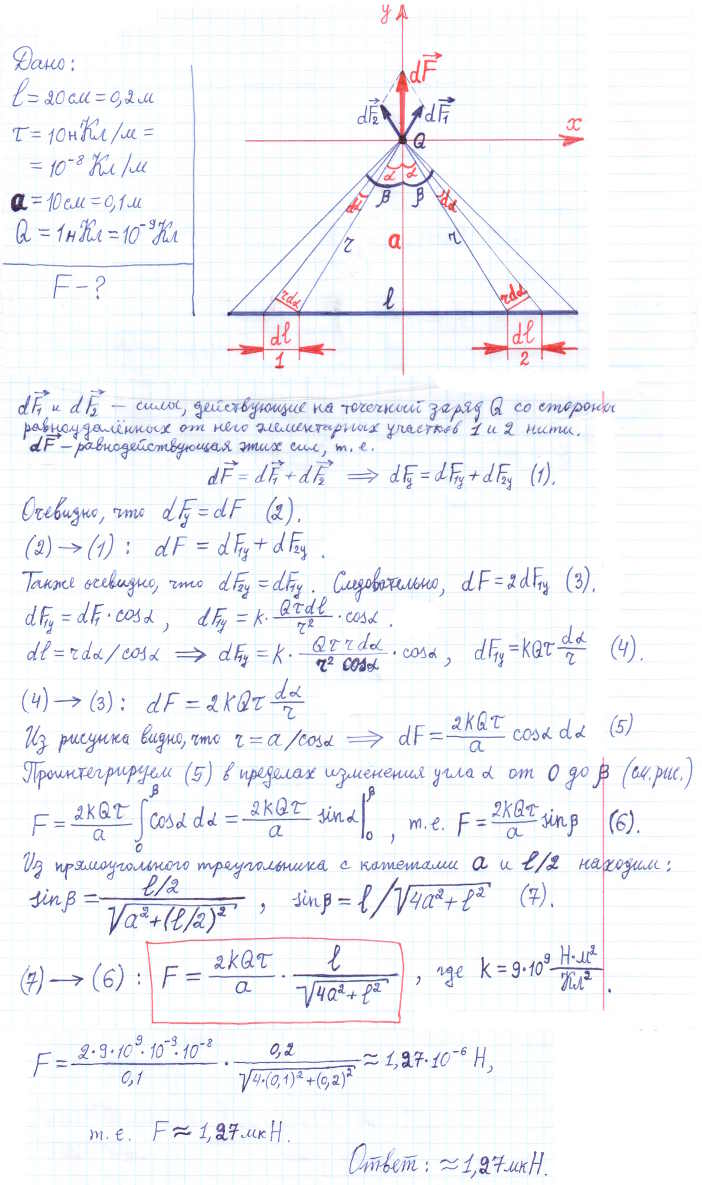 Дано:
l = 20 см = 0,2 м
τ = 10 нКл/м =
= 10⁻⁸ Кл/м
a = 10 см = 0,1 м
Q = 1 нКл = 10⁻⁹ Кл
F - ?
y
dF⃗
dF⃗₂ dF⃗₁
Q x
α α
β β
dα dα
r a r
rdα l rdα
dl dl
1 2
dF⃗₁ и dF⃗₂ – силы, действующие на точечный заряд Q со стороны
равноудалённых от него элементарных участков 1 и 2 нити.
dF⃗ – равнодействующая этих сил, т.е.
dF⃗ = dF⃗₁ + dF⃗₂ ⟹ dFy = dF₁y + dF₂y (1).
Очевидно, что dFy = dF (2).
(2) → (1) : dF = dF₁y + dF₂y .
Также очевидно, что dF₂y = dF₁y . Следовательно, dF = 2dF₁y (3).
dF₁y = dF₁ · cosα , dF₁y = k · Qτdl/r² · cosα .
dl = rdα/cosα ⟹ dF₁y = k · Qτrdα/(r² cosα) · cosα , dF₁y = kQτ dα/r (4).
(4) → (3) : dF = 2kQτ dα/r
Из рисунка видно, что r = a/cosα ⟹ dF = 2kQτ/a cosα dα (5)
Проинтегрируем (5) в пределах изменения угла α от 0 до β (см. рис.)
F = 2kQτ/a ∫₀^β cosα dα = 2kQτ/a sinα|₀^β , т.е. F = 2kQτ/a sinβ (6).
Из прямоугольного треугольника с катетами a и l/2 находим:
sinβ = (l/2)/√(a² + (l/2)²) , sinβ = l/√(4a² + l²) (7).
(7) → (6) : F = 2kQτ/a · l/√(4a² + l²) , где k = 9·10⁹ Н·м²/Кл² .
F = (2·9·10⁹·10⁻⁹·10⁻⁸)/0,1 · 0,2/√(4·(0,1)² + (0,2)²) ≈ 1,27·10⁻⁶ Н,
т.е. F ≈ 1,27 мкН.
Ответ: ≈ 1,27 мкН.